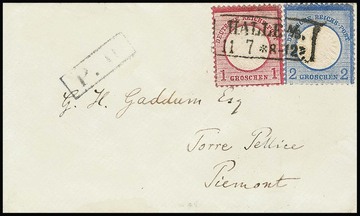 HALLE A/S.
1 7 * 8-12
DEUTSCHE REICHS-POST
1 GROSCHEN 1
2 GROSCHEN 2
P. D.
G. H. Gaddum Esq
Torre Pellice
Piemont